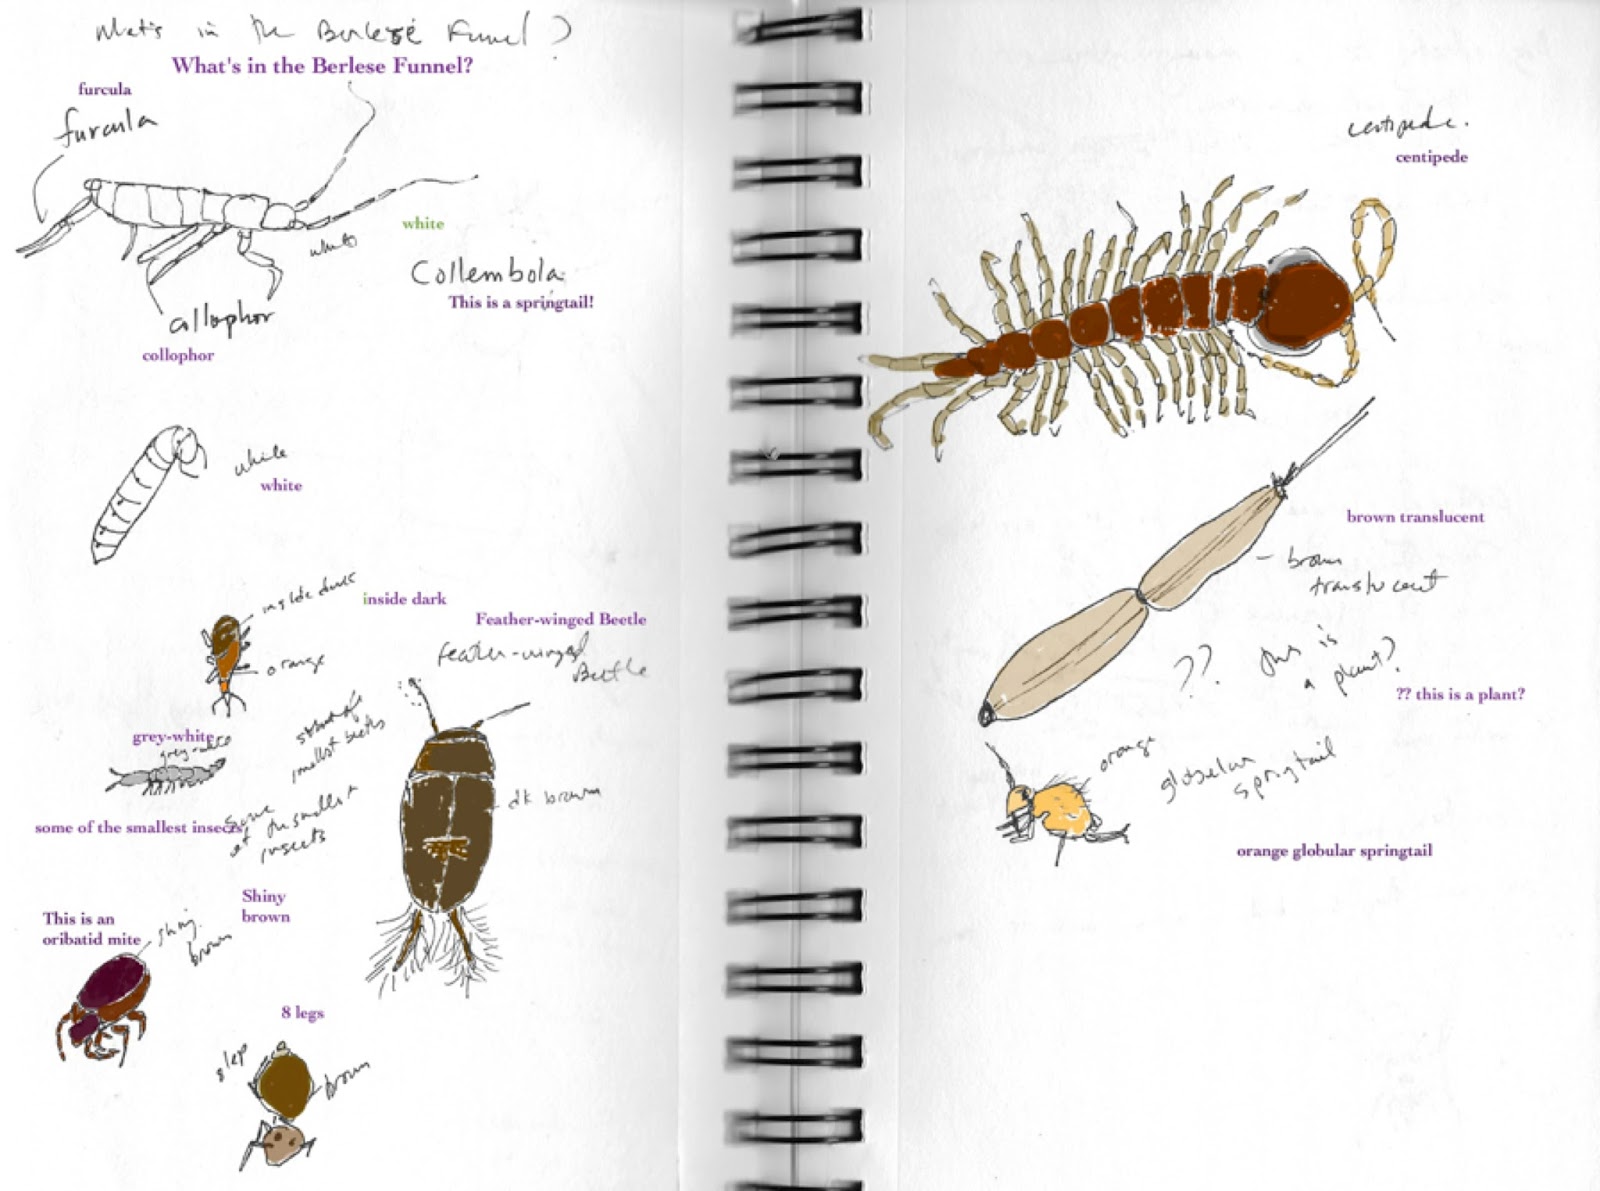 What's in the Berlese Funnel?
What's in the Berlese Funnel?
furcula
furcula
white
white
Collembola
This is a springtail!
collophor
collophor
white
white
inside dark
inside dark
orange
Feather-winged Beetle
Feather-winged
Beetle
grey-white
grey-white
some of the
smallest beetles
dk brown
some of the smallest insects
some
of the smallest
insects
Shiny
brown
This is an
oribatid mite
shiny
brown
8 legs
8 leg
brown
centipede.
centipede
brown translucent
brown
translucent
?? this is
a plant?
?? this is a plant?
orange
globular
springtail
orange globular springtail